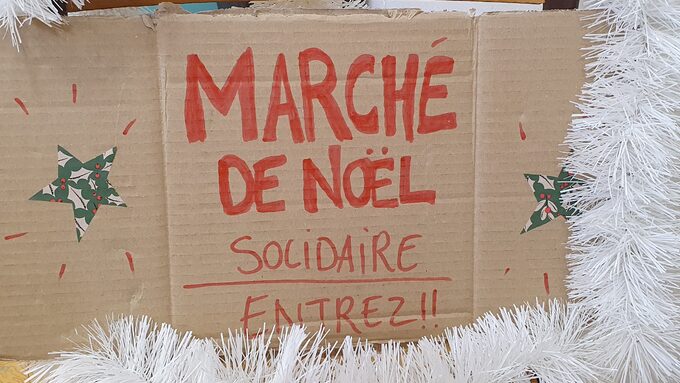 MARCHÉ
DE NOËL
SOLIDAIRE
ENTREZ!!